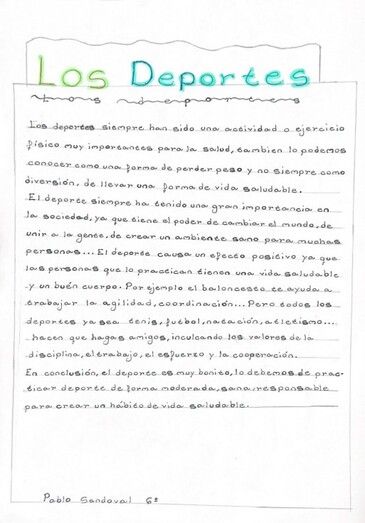 Los Deportes
Los deportes
Los deportes siempre han sido una actividad o ejercicio
físico muy importantes para la salud, tambien lo podemos
conocer como una forma de perder peso y no siempre como
diversión, de llevar una forma de vida saludable.
El deporte siempre ha tenido una gran importancia en
la sociedad, ya que tiene el poder de cambiar el mundo, de
unir a la gente, de crear un ambiente sano para muchas
personas... El deporte causa un efecto positivo ya que
las personas que lo practican tienen una vida saludable
y un buén cuerpo. Por ejemplo el baloncesto te ayuda a
trabajar la agilidad, coordinación... Pero todos los
deportes ya sea tenis, futbol, natación, atletismo...
hacen que hagas amigos, inculcando los valores de la
disciplina, el trabajo, el esfuerzo y la cooperación.
En conclusión, el deporte es muy bonito, lo debemos de prac-
ticar deporte de forma moderada, sana, responsable
para crear un hábito de vida saludable.
Pablo Sandoval 6º